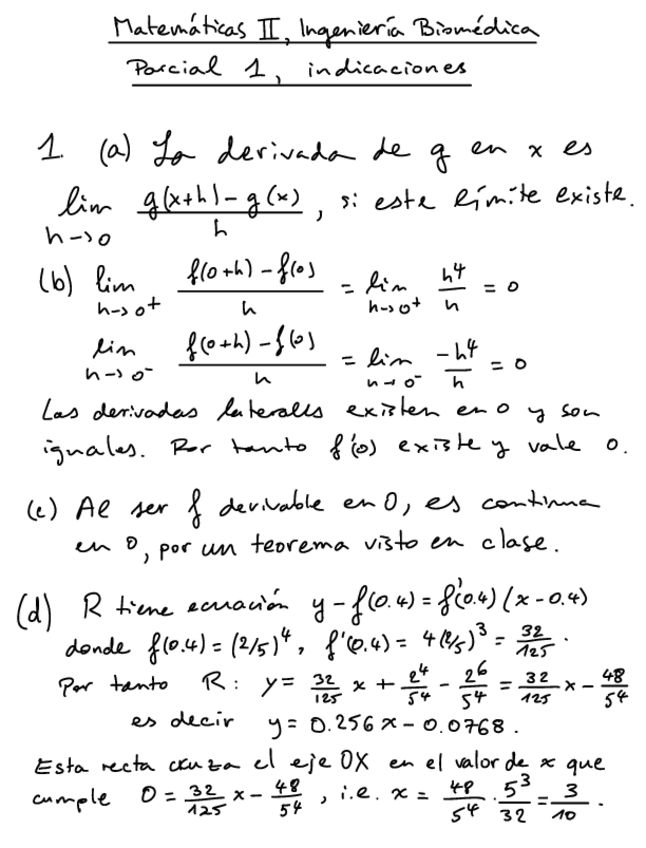 Matemáticas II, Ingeniería Biomédica
Parcial 1, indicaciones
1. (a) La derivada de g en x es
lim h->0 (g(x+h)-g(x))/h, si este límite existe.
(b) lim h->0+ (f(0+h)-f(0))/h = lim h->0+ h^4/h = 0
lim h->0- (f(0+h)-f(0))/h = lim h->0- -h^4/h = 0
Las derivadas laterales existen en 0 y son
iguales. Por tanto f'(0) existe y vale 0.
(c) Al ser f derivable en 0, es continua
en 0, por un teorema visto en clase.
(d) R tiene ecuación y-f(0.4)=f'(0.4)(x-0.4)
donde f(0.4)=(2/5)^4, f'(0.4)=4(2/5)^3=32/125.
Por tanto R: y= 32/125 x + 2^4/5^4 - 2^6/5^4 = 32/125 x - 48/5^4
es decir y=0.256x-0.0768.
Esta recta cruza el eje OX en el valor de x que
cumple 0= 32/125 x - 48/5^4, i.e. x= 48/5^4 · 5^3/32 = 3/10.